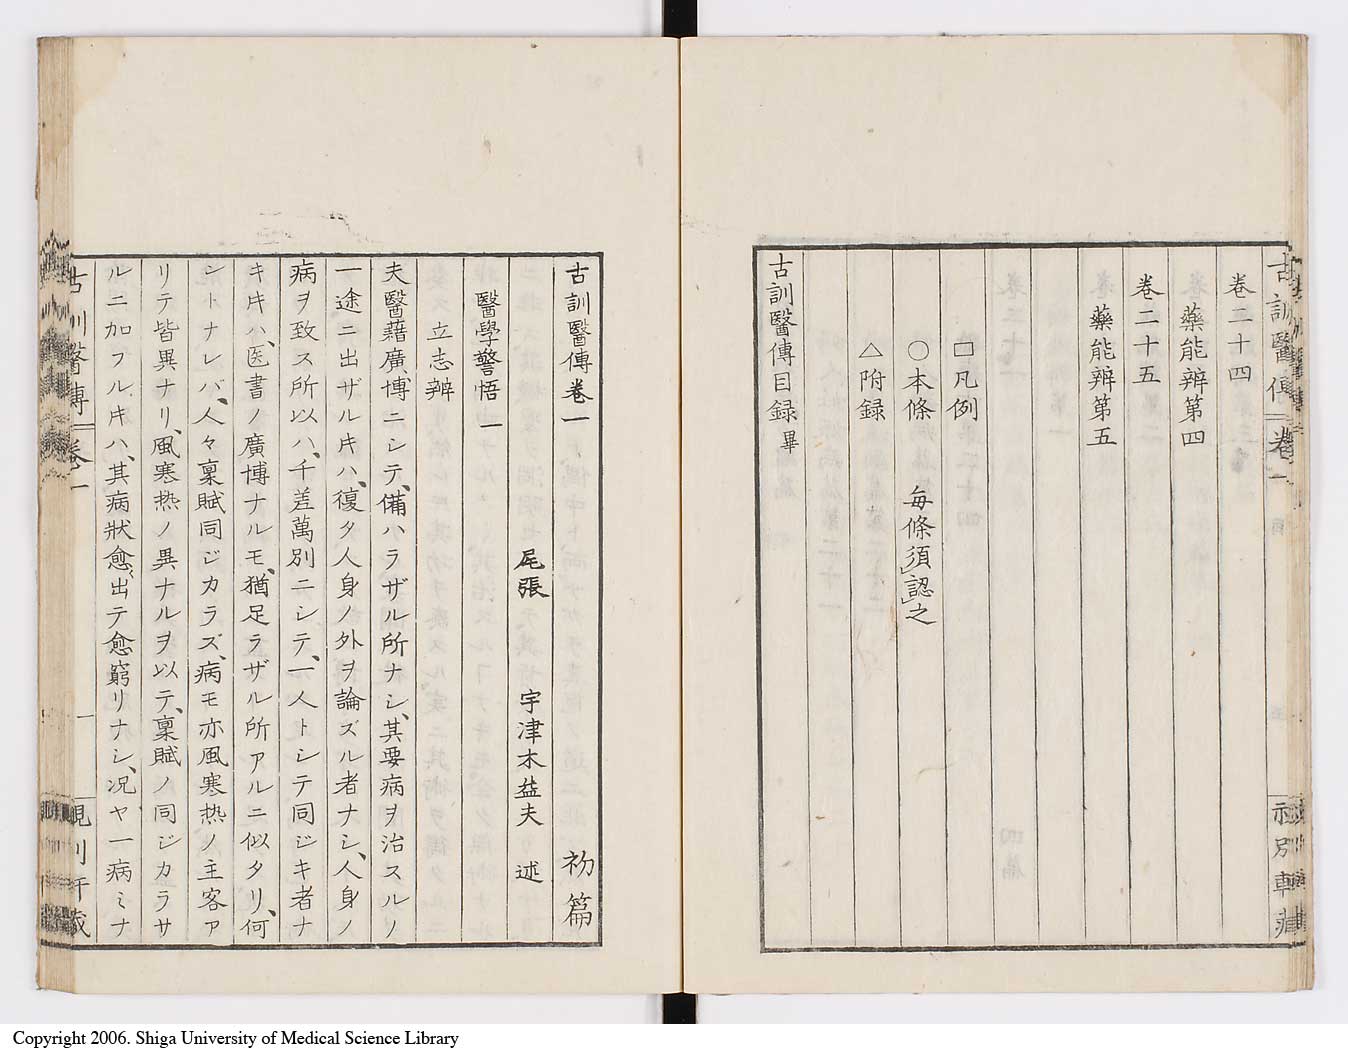 卷二十四
藥能辨第四
卷二十五
藥能辨第五
□凡例
○本條　每條須認之
△附録
古訓醫傳目録畢
古訓醫傳卷一　初篇
尾張　宇津木益夫　述
醫學警悟一
立志辨
夫醫藉廣博ニシテ、備ハラザル所ナシ、其要病ヲ治スルノ
一途ニ出ザル片ハ、復タ人身ノ外ヲ論ズル者ナシ、人身ノ
病ヲ致ス所以ハ、千差萬別ニシテ、一人トシテ同ジキ者ナ
キ片ハ、医書ノ廣博ナルモ、猶足ラザル所アルニ似タリ、何
ントナレバ、人々稟賦同ジカラズ、病モ亦風寒热ノ主客ア
リテ皆異ナリ、風寒热ノ異ナルヲ以テ、稟賦ノ同ジカラサ
ルニ加フル片ハ、其病狀愈出テ愈窮リナシ、况ヤ一病ミナ
古訓醫傳　卷一　一
Copyright 2006. Shiga University of Medical Science Library